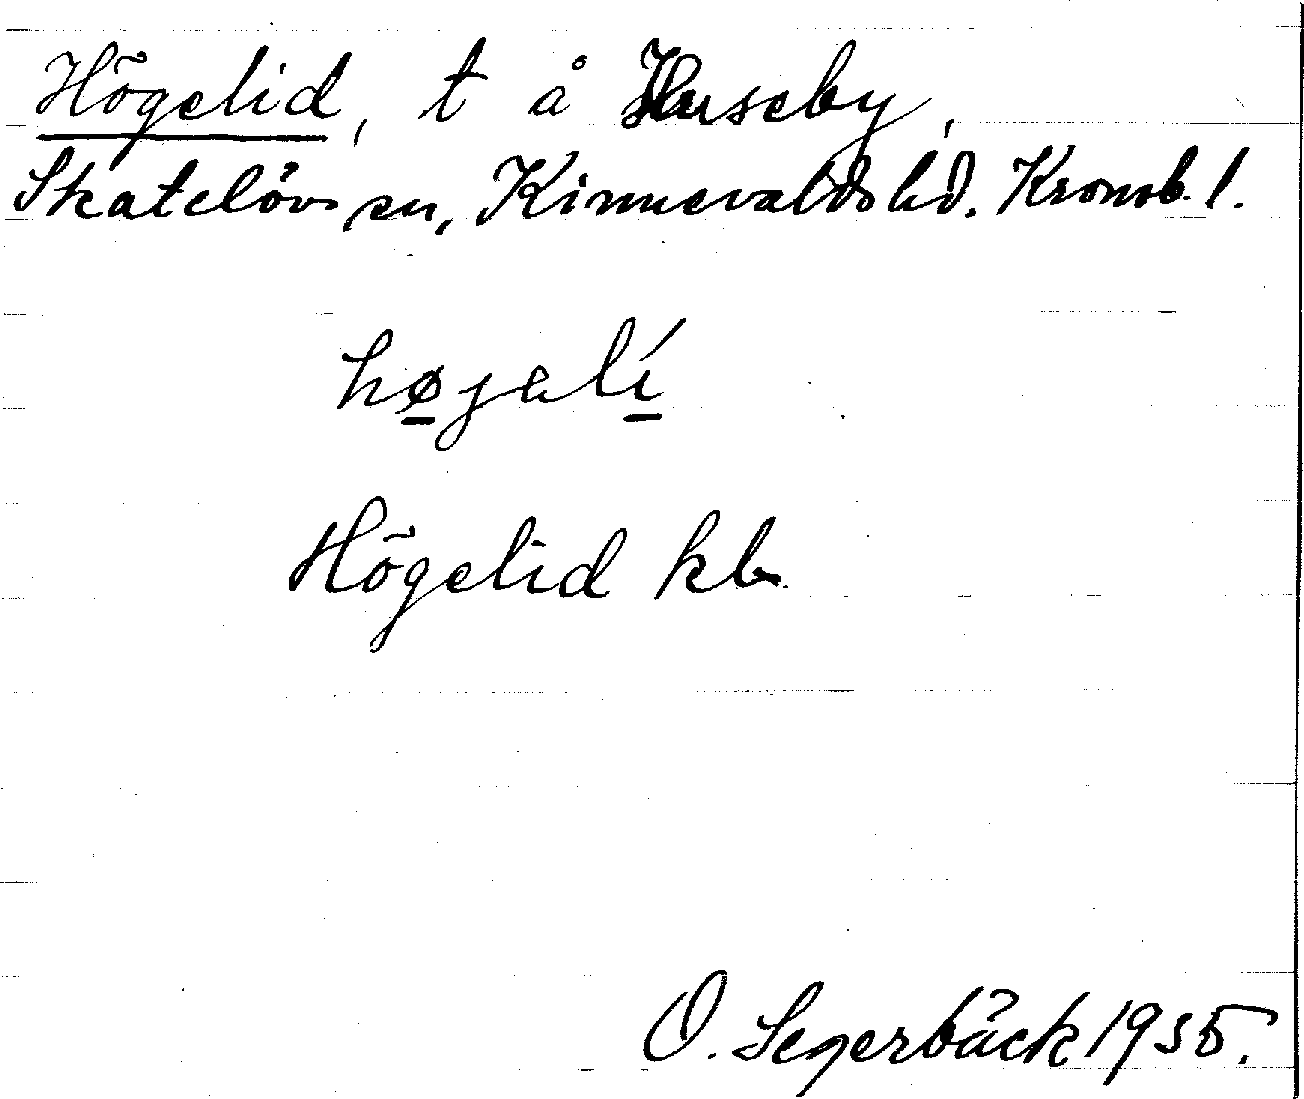 Högelid, t å Huseby,
Skatelövs sn, Kinnevalds hd. Kronob. l.
højalí
Högelid kb
O. Segerbäck 1935.